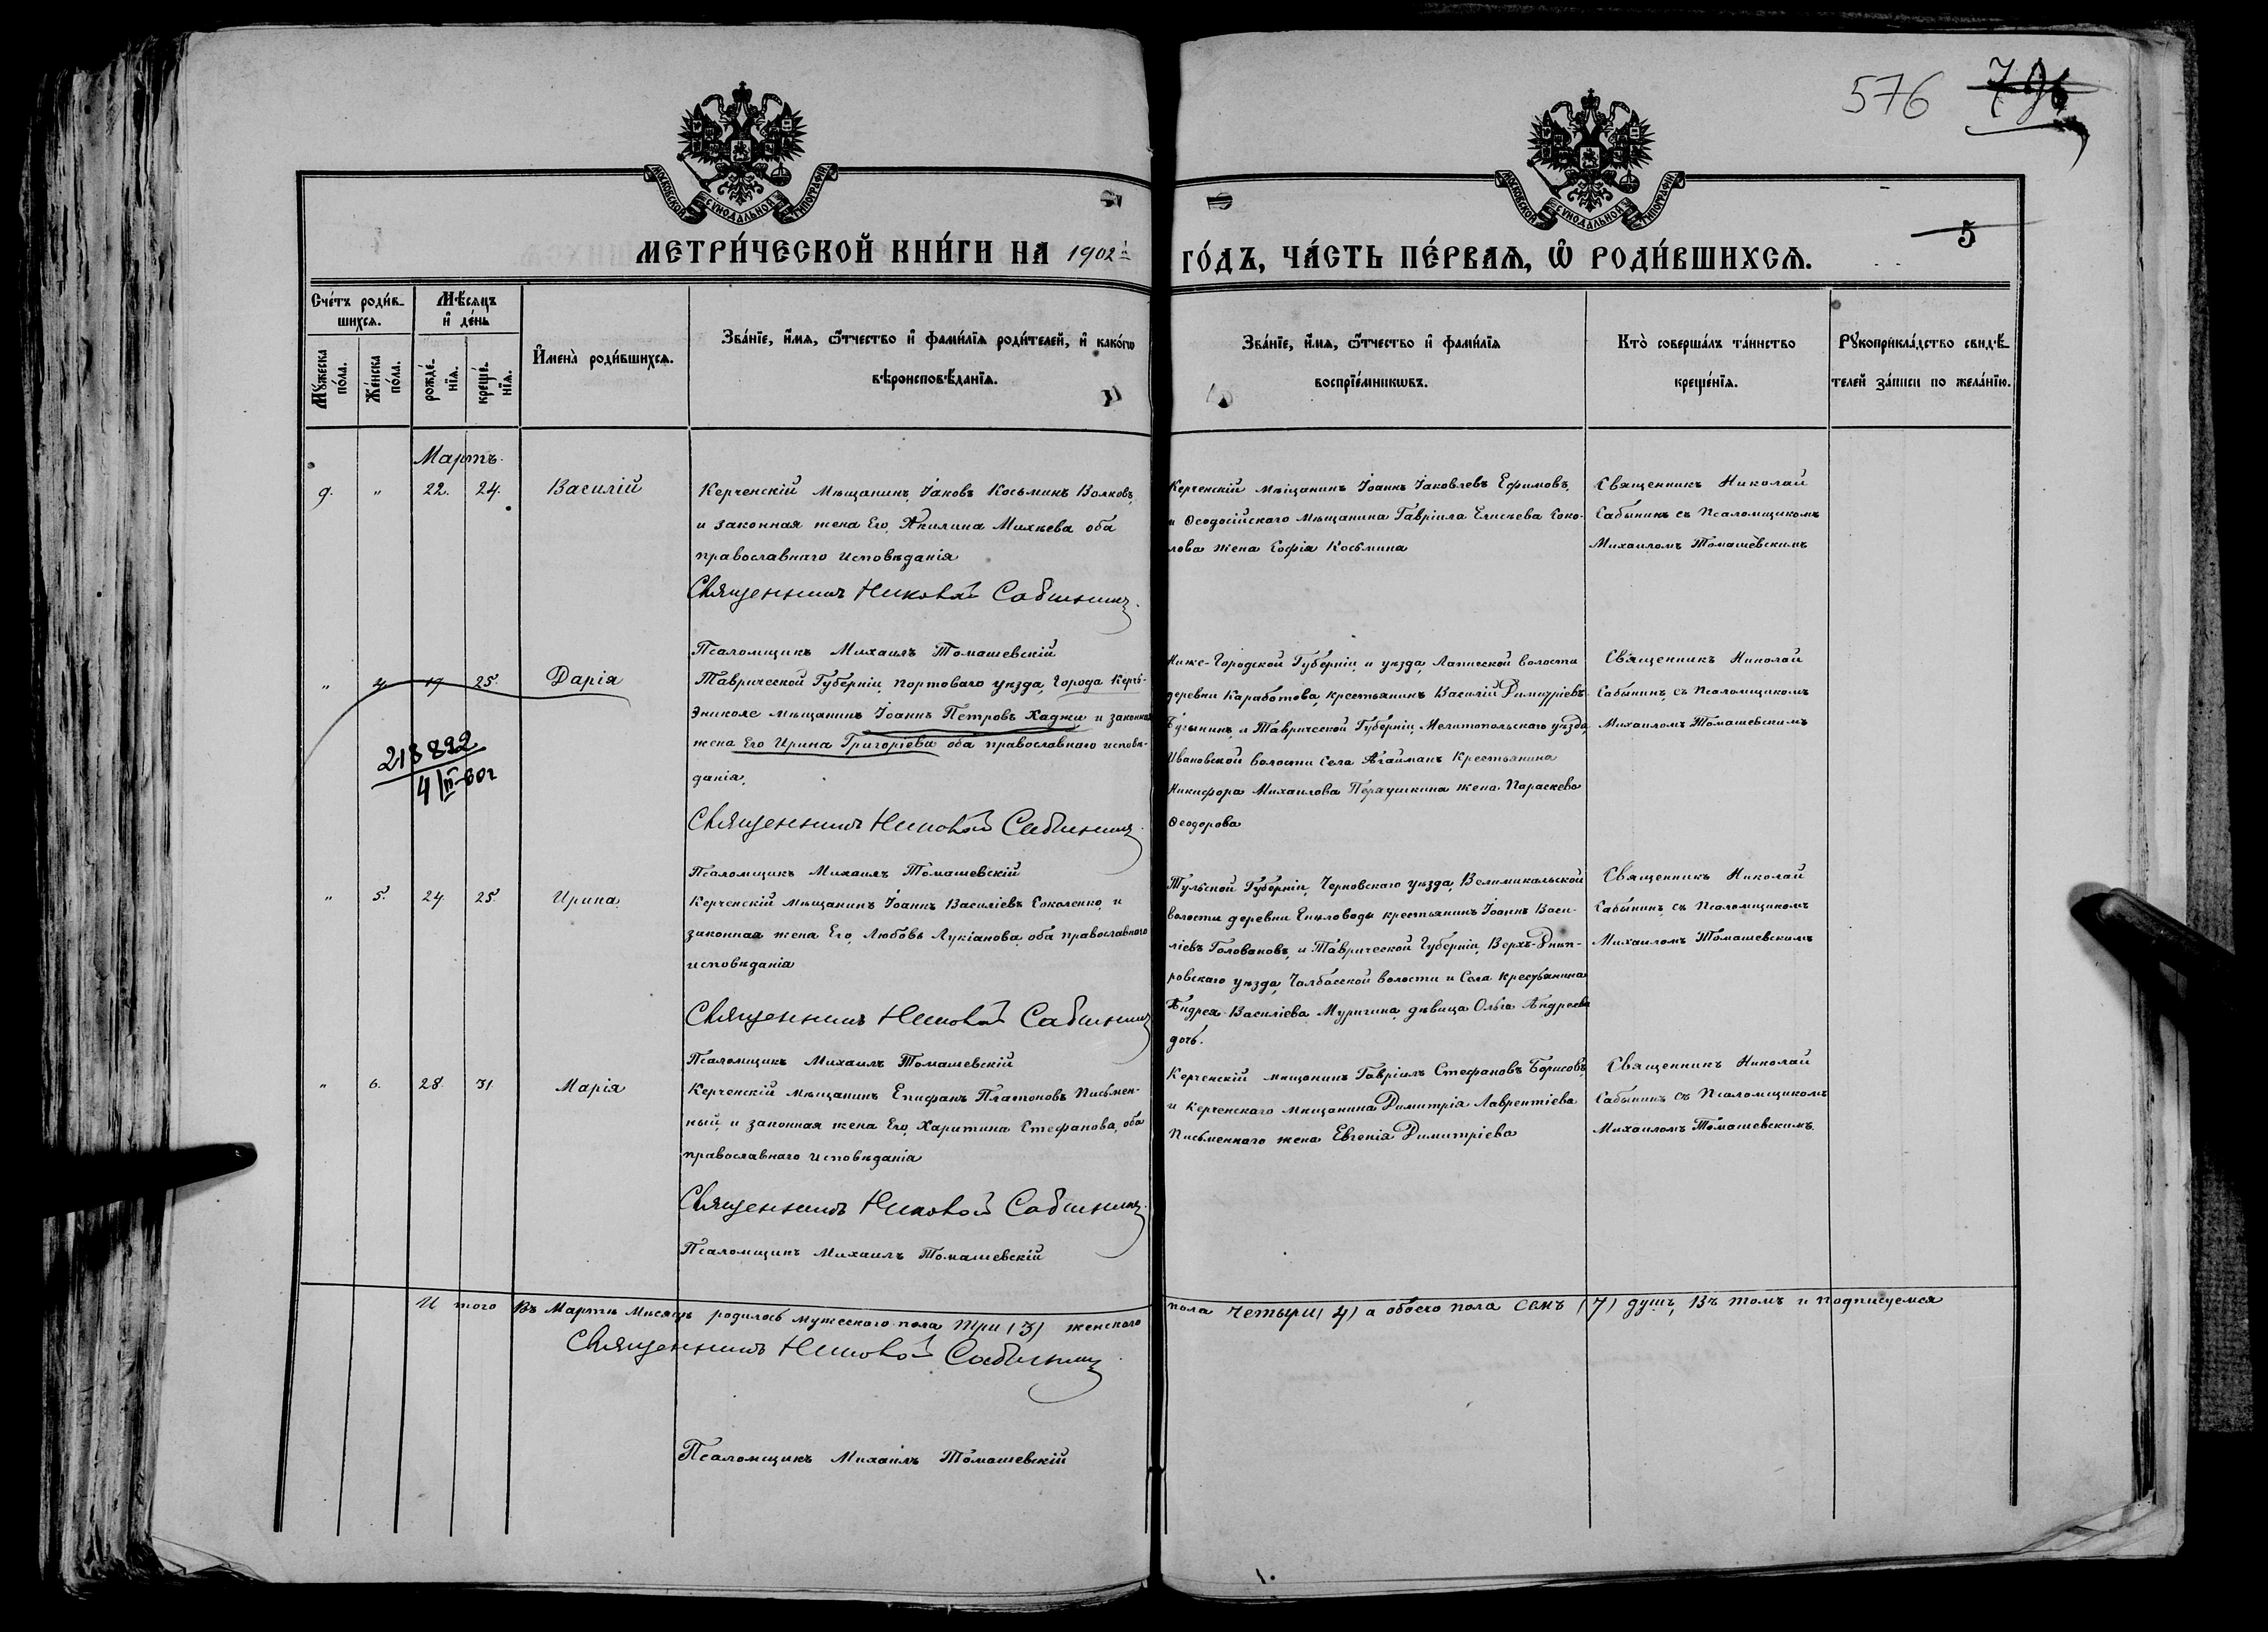 576 796
МОСКОВСКОЙ СѴНОДАЛЬНОЙ ТИПОГРАФІИ
МОСКОВСКОЙ СѴНОДАЛЬНОЙ ТИПОГРАФІИ
5
МЕТРИ́ЧЕСКОЙ КНИ́ГИ НА 1902й
ГО́ДЪ, ЧА́СТЬ ПЕ́РВАѦ, Ѡ҆ РОДИ́ВШИХСѦ.
Сче́тъ роди́в-
шихсѧ.
Мꙋжеска по́ла.
Же́нска по́ла.
Мѣ́сяцъ
и҆ де́нь
рожде́-
нїѧ.
креще́-
нїѧ.
И҆мена̀ роди́вшихсѧ.
Зва́нїе, и҆́мѧ, ѻ҆́тчество и҆ фами́лїѧ роди́телей, и҆ како́гѡ
вѣроисповѣ́данїѧ.
Зва́нїе, и҆́мѧ, ѻ҆́тчество и҆ фами́лїѧ
воспрїе́мникѡвъ.
Кто̀ соверша́лъ та́инство
креще́нїѧ.
Рꙋкоприкла́дство свидѣ́-
телей за́писи по жела́нїю.
Мартъ.
9. " 22. 24. Василій
Керченскій Мѣщанинъ, Іаковъ Косьминъ Волковъ,
и законная жена Его, Акилина Михѣева оба
православнаго исповѣданія
Священникъ Николай Сабынинъ.
Псаломщикъ Михаилъ Томашевскій
Керченскій мѣщанинъ Іоаннъ Іаковлевъ Ефимовъ,
и Ѳеодосійскаго Мѣщанина Гавріила Елисѣева Соко-
лова жена Софія Косьмина
Священникъ Николай
Сабынинъ съ Псаломщикомъ
Михаиломъ Томашевскимъ
" 4. 19 25. Дарія
218822
4/II-60г
Таврической Губерніи, портоваго уѣзда, Города Керчь-
Эниколе мѣщанинъ Іоаннъ Петровъ Хаджи и законная
жена Его Ирина Григоріева оба православнаго исповѣ-
данія.
Священникъ Николай Сабынинъ.
Псаломщикъ Михаилъ Томашевскій
Ниже-Городской Губерніи, и уѣзда, волости
деревни Каработова, крестьянинъ Василій Димитріевъ
и Таврической Губерніи, Мелитопольскаго уѣзда,
Ивановской волости Села Агайманъ Крестьянина
Никифора Михаилова жена Параскева
Ѳеодорова
Священникъ Николай
Сабынинъ, съ Псаломщикомъ
Михаиломъ Томашевскимъ
" 5. 24. 25. Ирина
Керченскій мѣщанинъ Іоаннъ Василіевъ Соколенко, и
законная жена Его, Любовь Лукіанова, оба православного
исповѣданія
Священникъ Николай Сабынинъ
Псаломщикъ Михаилъ Томашевскій
Тульской Губерніи, Черновскаго уѣзда,
волости деревни крестьянинъ Іоаннъ Васи-
ліевъ Головановъ, и Таврической Губерніи, Верхъ-Днѣп-
ровскаго уѣзда, Чалбасской волости и Села крестьянина
Андрея Василіева Муригина, дѣвица Ольга Андреева
дочь.
Священникъ Николай
Сабынинъ, съ Псаломщикомъ
Михаиломъ Томашевскимъ
" 6. 28. 31. Марія
Керченскій мѣщанинъ Епифанъ Платоновъ Письмен-
ный, и законная жена Его, Харитина Стефанова, оба
православнаго исповѣданія
Священникъ Николай Сабынинъ.
Псаломщикъ Михаилъ Томашевскій
Керченскій мѣщанинъ Гавріилъ Стефановъ Борисовъ,
и Керченскаго мѣщанина Димитрія Лаврентіева
Письменнаго жена Евгенія Димитріева
Священникъ Николай
Сабынинъ съ Псаломщикомъ
Михаиломъ Томашевскимъ.
И того Въ Мартѣ Мѣсяцѣ родилось мужескаго пола Три (3) женскаго
пола Четыри (4) а обоего пола Семь (7) душъ, Въ томъ и подписуемся
Священникъ Николай Сабынинъ.
Псаломщикъ Михаилъ Томашевскій